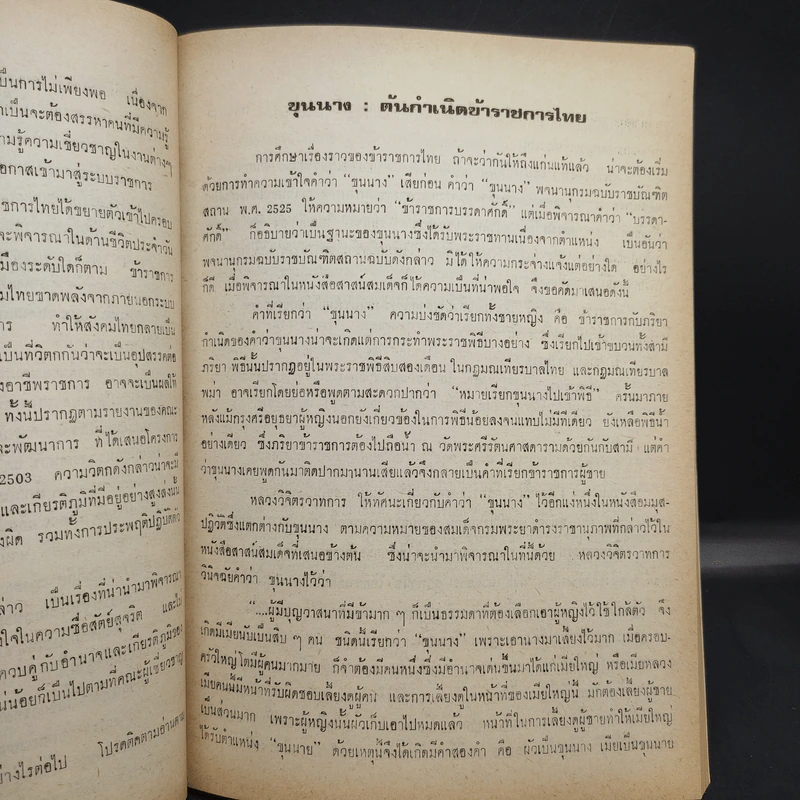 ป็นการไม่เพียงพอ เนื่องจาก
าเป็นจะต้องสรรหาคนที่มีความรู้
ามรู้ความเชี่ยวชาญในงานต่างๆ
อกาสเข้ามาสู่ระบบราชการ
ชการไทยได้ขยายตัวเข้าไปครอบ
จะพิจารณาในด้านชีวิตประจำวัน
มืองระดับใดก็ตาม ข้าราชการ
มไทยขาดพลังจากภายนอกระบบ
การ ทำให้สังคมไทยกลายเป็น
เป็นที่วิตกกันว่าจะเป็นอุปสรรคต่อ
งอาชีพราชการ อาจจะเป็นผลให้
ทั้งนี้ปรากฏตามรายงานของคณะ
ะพัฒนาการ ที่ได้เสนอโครงการ
2503 ความวิตกดังกล่าวน่าจะมี
และเกียรติภูมิที่มีอยู่อย่างสูงส่งนั้น
งผิด รวมทั้งการประพฤติปฏิบัติตัว
ล่าว เป็นเรื่องที่น่านำมาพิจารณา
งใจในความซื่อสัตย์สุจริต และไม่
ควบคู่กับอำนาจและเกียรติภูมิของ
น่น้อยก็เป็นไปตามที่คณะผู้เชี่ยวชาญ
ย่างไรต่อไป โปรดติดตามอ่านตาม
ขุนนาง : ต้นกำเนิดข้าราชการไทย
การศึกษาเรื่องราวของข้าราชการไทย ถ้าจะว่ากันให้ถึงแก่นแท้แล้ว น่าจะต้องเริ่ม
ด้วยการทำความเข้าใจคำว่า "ขุนนาง" เสียก่อน คำว่า "ขุนนาง" พจนานุกรมฉบับราชบัณฑิต
สถาน พ.ศ. 2525 ให้ความหมายว่า "ข้าราชการบรรดาศักดิ์" แต่เมื่อพิจารณาคำว่า "บรรดา-
ศักดิ์" ก็อธิบายว่าเป็นฐานะของขุนนางซึ่งได้รับพระราชทานเนื่องจากตำแหน่ง เป็นอันว่า
พจนานุกรมฉบับราชบัณฑิตสถานฉบับดังกล่าว มิได้ให้ความกระจ่างแจ้งแต่อย่างใด อย่างไร
ก็ดี เมื่อพิจารณาในหนังสือสาสน์สมเด็จก็ได้ความเป็นที่น่าพอใจ จึงขอคัดมาเสนอดังนี้
คำที่เรียกว่า "ขุนนาง" ความบ่งชัดว่าเรียกทั้งชายหญิง คือ ข้าราชการกับภริยา
กำเนิดของคำว่าขุนนางน่าจะเกิดแต่การกระทำพระราชพิธีบางอย่าง ซึ่งเรียกไปเข้าขบวนทั้งสามี
ภริยา พิธีนั้นปรากฏอยู่ในพระราชพิธีสิบสองเดือน ในกฎมณเทียรบาลไทย และกฎมณเทียรบาล
พม่า อาจเรียกโดยย่อหรือพูดตามสะดวกปากว่า "หมายเรียกขุนนางไปเข้าพิธี" ครั้นมาภาย
หลังแม้กรุงศรีอยุธยาผู้หญิงนอกยังเกี่ยวข้องในการพิธีน้อยลงจนแทบไม่มีทีเดียว ยังเหลือพิธีน้ำ
อย่างเดียว ซึ่งภริยาข้าราชการต้องไปถือน้ำ ณ วัดพระศรีรัตนศาสดารามด้วยกันกับสามี แต่คำ
ว่าขุนนางเคยพูดกันมาติดปากมานานเสียแล้วจึงกลายเป็นคำที่เรียกข้าราชการผู้ชาย
หลวงวิจิตรวาทการ ให้ทัศนะเกี่ยวกับคำว่า "ขุนนาง" ไว้อีกแง่หนึ่งในหนังสือมนุส-
ปฏิวัติซึ่งแตกต่างกับขุนนาง ตามความหมายของสมเด็จกรมพระยาดำรงราชานุภาพที่กล่าวไว้ใน
หนังสือสาสน์สมเด็จที่เสนอข้างต้น ซึ่งน่าจะนำมาพิจารณาในที่นี้ด้วย หลวงวิจิตรวาทการ
วินิจฉัยคำว่า ขุนนางไว้ว่า
"....ผู้มีบุญวาสนาที่มีข้ามาก ๆ ก็เป็นธรรมดาที่ต้องเลือกเอาผู้หญิงไว้ใช้ใกล้ตัว จึง
เกิดมีเมียนับเป็นสิบ ๆ คน ชนิดนี้เรียกว่า "ขุนนาง" เพราะเอานางมาเลี้ยงไว้มาก เมื่อครอบ-
ครัวใหญ่โตมีผู้คนมากมาย ก็จำต้องมีคนหนึ่งซึ่งมีอำนาจเด่นขึ้นมาได้แก่เมียใหญ่ หรือเมียหลวง
เมียคนนี้มีหน้าที่รับผิดชอบเลี้ยงดูผู้คน และการเลี้ยงดูในหน้าที่ของเมียใหญ่นี้ มักต้องเลี้ยงผู้ชาย
เป็นส่วนมาก เพราะผู้หญิงนั้นผัวเก็บเอาไปหมดแล้ว หน้าที่ในการเลี้ยงดูผู้ชายทำให้เมียใหญ่
ได้รับตำแหน่ง "ขุนนาย" ด้วยเหตุนี้จึงได้เกิดมีคำสองคำ คือ ผัวเป็นขุนนาง เมียเป็นขุนนาย